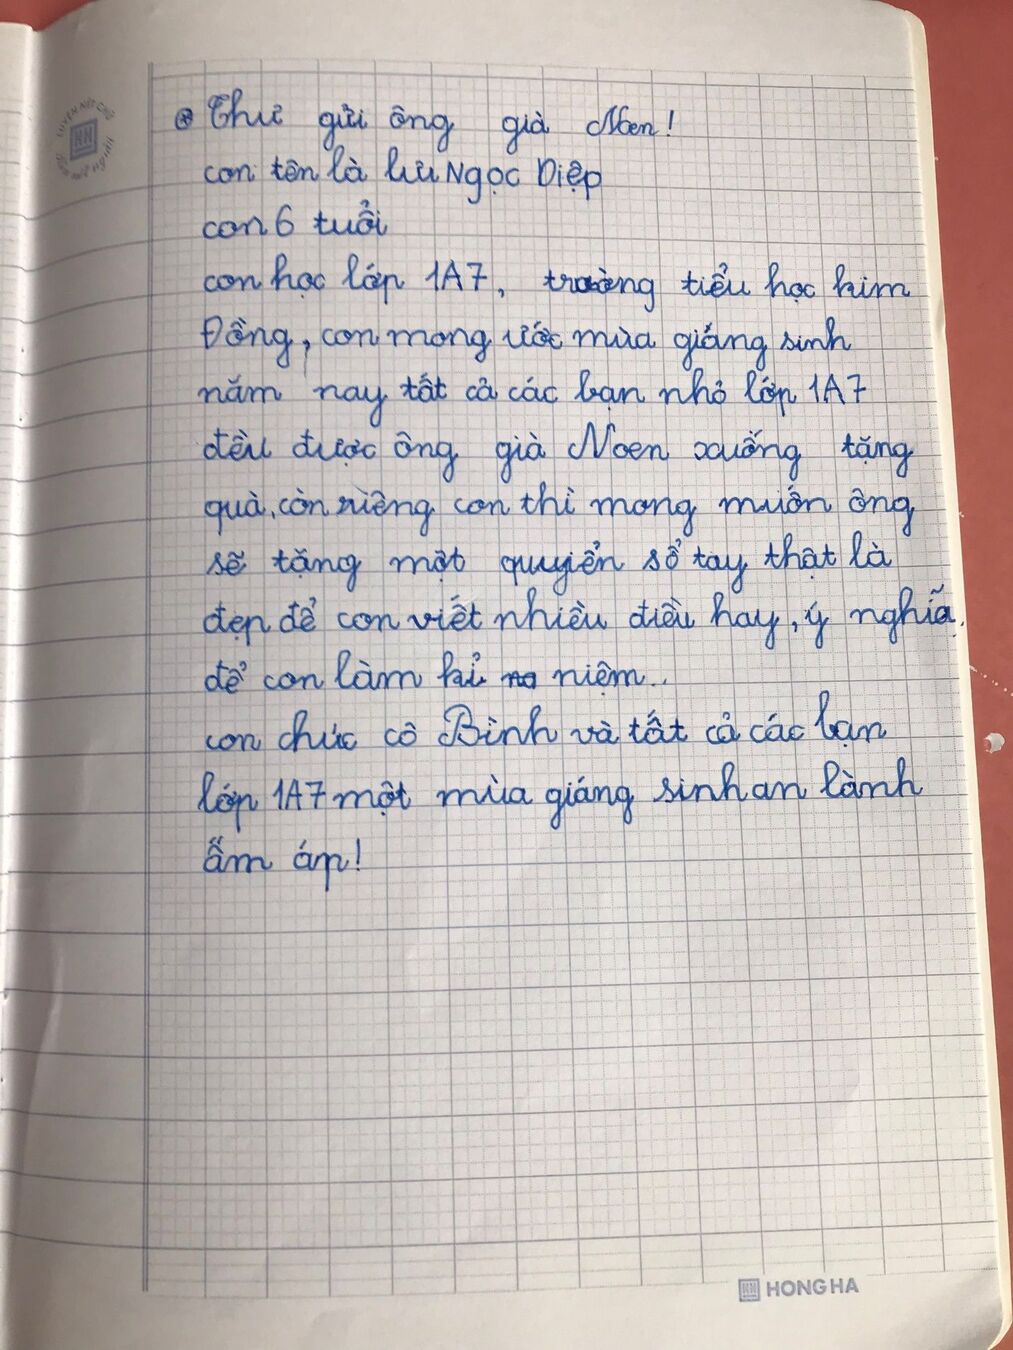 Thư gửi ông già Noen!
con tên là lưu Ngọc Diệp
con 6 tuổi
con học lớp 1A7, trường tiểu học kim
Đồng, con mong ước mùa giáng sinh
năm nay tất cả các bạn nhỏ lớp 1A7
đều được ông già Noen xuống tặng
quà, còn riêng con thì mong muốn ông
sẽ tặng một quyển sổ tay thật là
đẹp để con viết nhiều điều hay, ý nghĩa,
để con làm kỉ niệm..
con chúc cô Bình và tất cả các bạn
lớp 1A7 một mùa giáng sinh an lành
ấm áp!
HONG HA